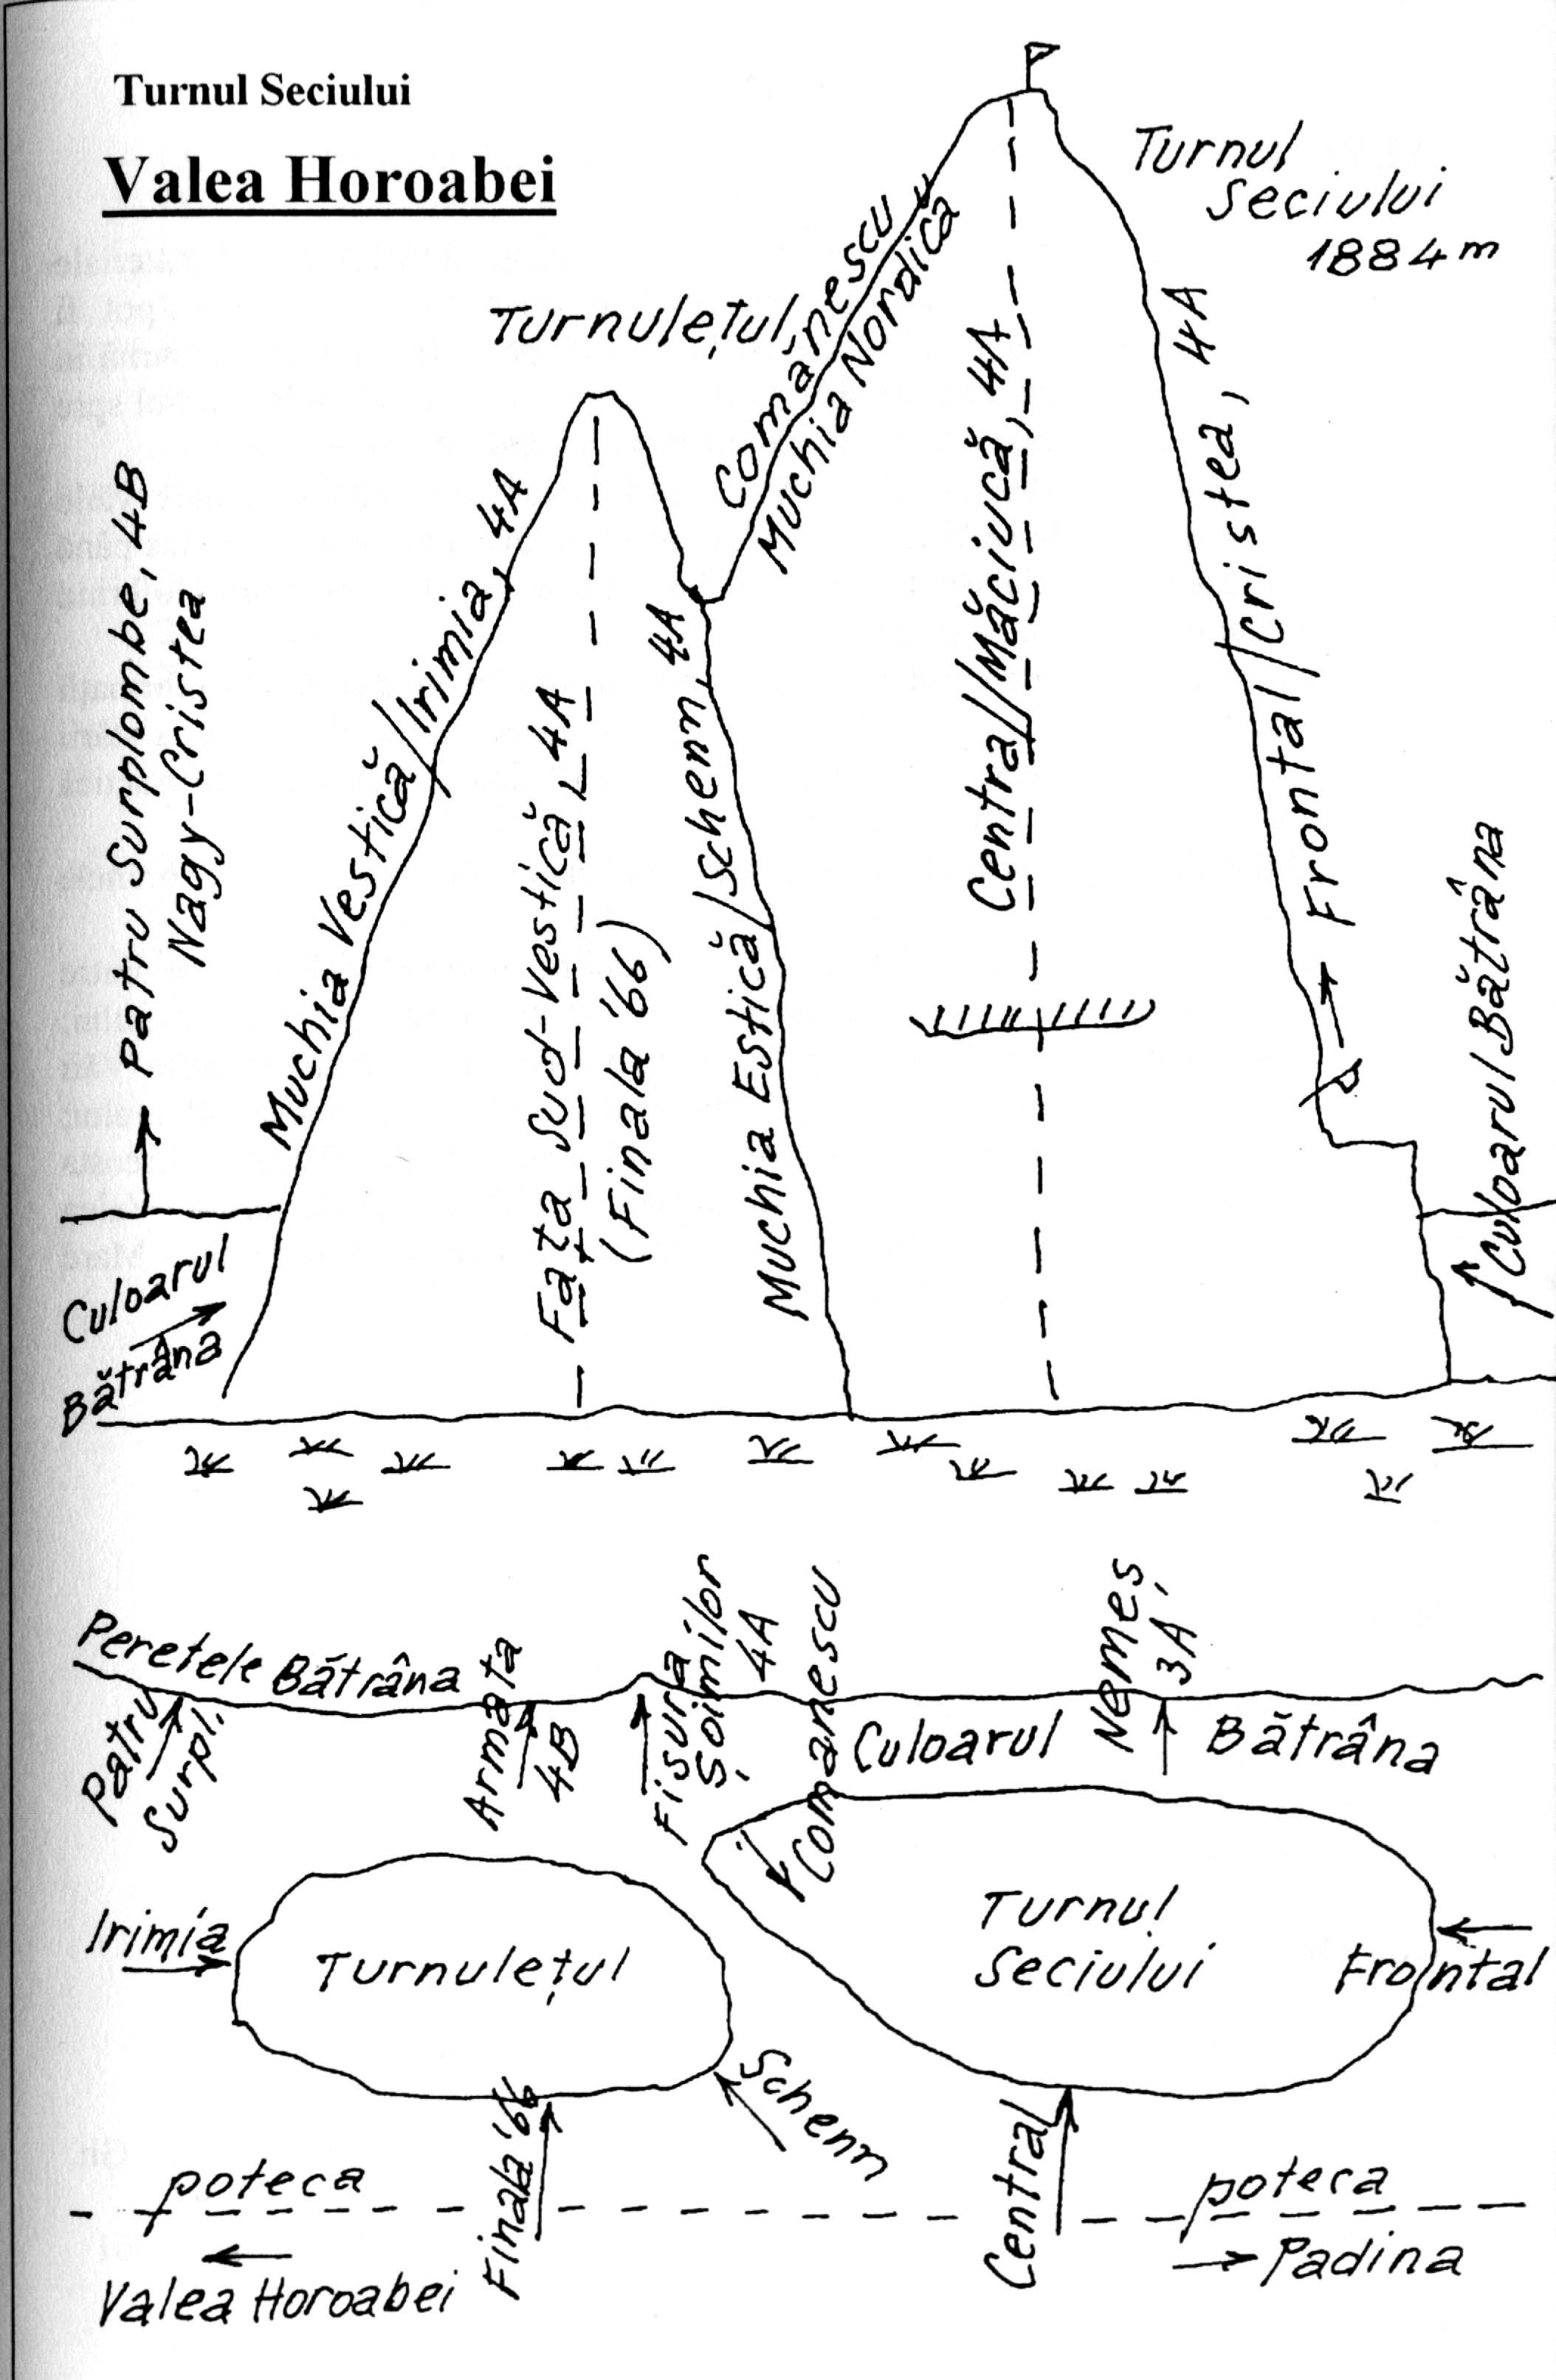 Turnul Seciului
Valea Horoabei
Turnul
Seciului
1884 m
Turnulețul
Comănescu
Muchia Nordica
Patru Surplombe, 4B
Nagy-Cristea
Muchia Vestică/Irimia, 4A
Fața Sud-Vestică, 4A
(Finala '66)
Muchia Estică/Schenn, 4A
Central/Măciucă, 4A
Frontal/Cristea, 4A
Culoarul Bătrâna
Culoarul
Bătrâna
Peretele Bătrâna
Patru
Surpl.
Armata
4B
Fisura
Șoimilor
4A
Comanescu
Culoarul
Nemeș,
3A
Bătrâna
Irimia
Turnulețul
Turnul
Seciului
Frontal
Schenn
Finala '66
Central
poteca
poteca
Valea Horoabei
Padina